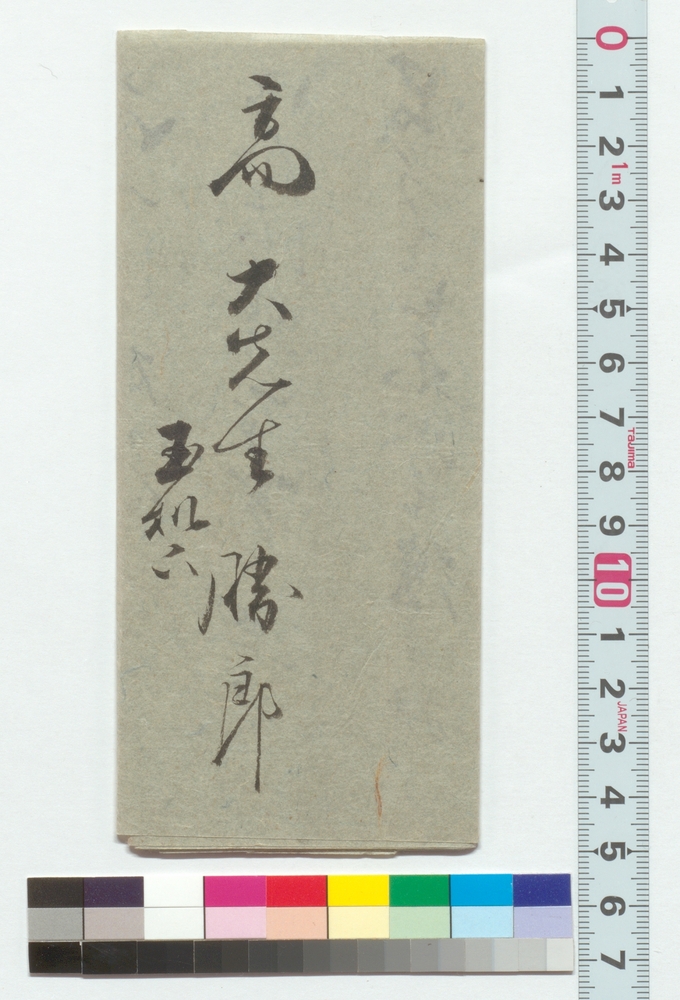 高
大先生 勝郎
玉机下
0 1 2 3 4 5 6 7 8 9 10 1 2 3 4 5 6 7
1m
Tajima
JAPAN